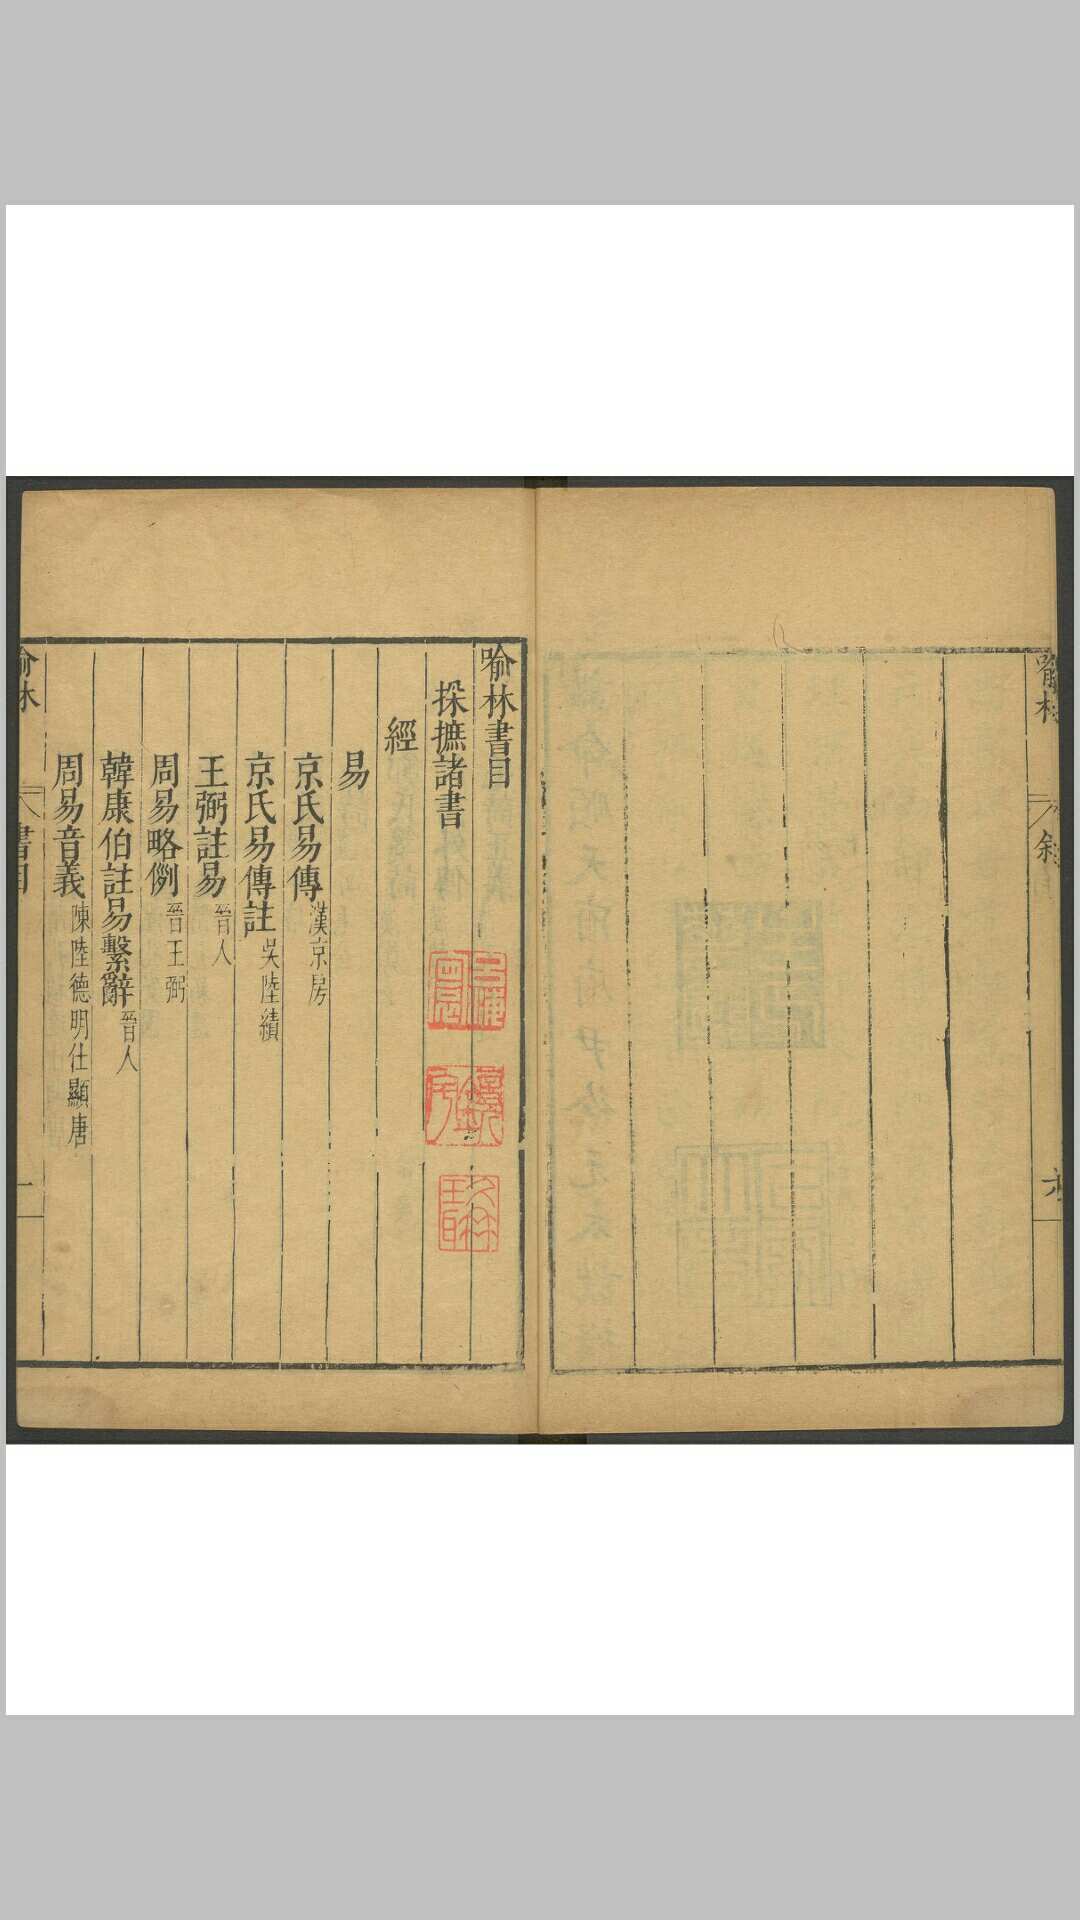 喻林
敘
六
喻林書目
採摭諸書
經
易
京氏易傳漢京房
京氏易傳註吳陸績
王弼註易晉人
周易略例晉王弼
韓康伯註易繫辭晉人
周易音義陳陸德明仕顯唐
喻林
書目
一